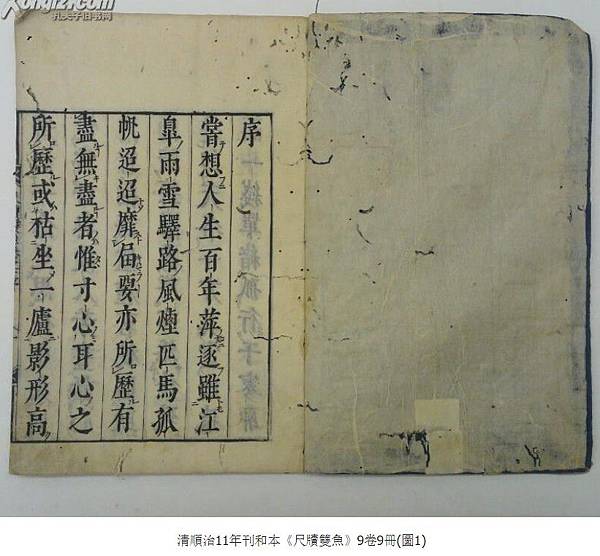 序
嘗想人生百年萍逐雖江
皐雨雪驛路風煙匹馬孤
帆迢迢靡屆要亦所歷有
盡無盡者惟寸心耳心之
所歷或枯坐一廬影形高
清順治11年刊和本《尺牘雙魚》9卷9冊(圖1)
孔夫子旧书网